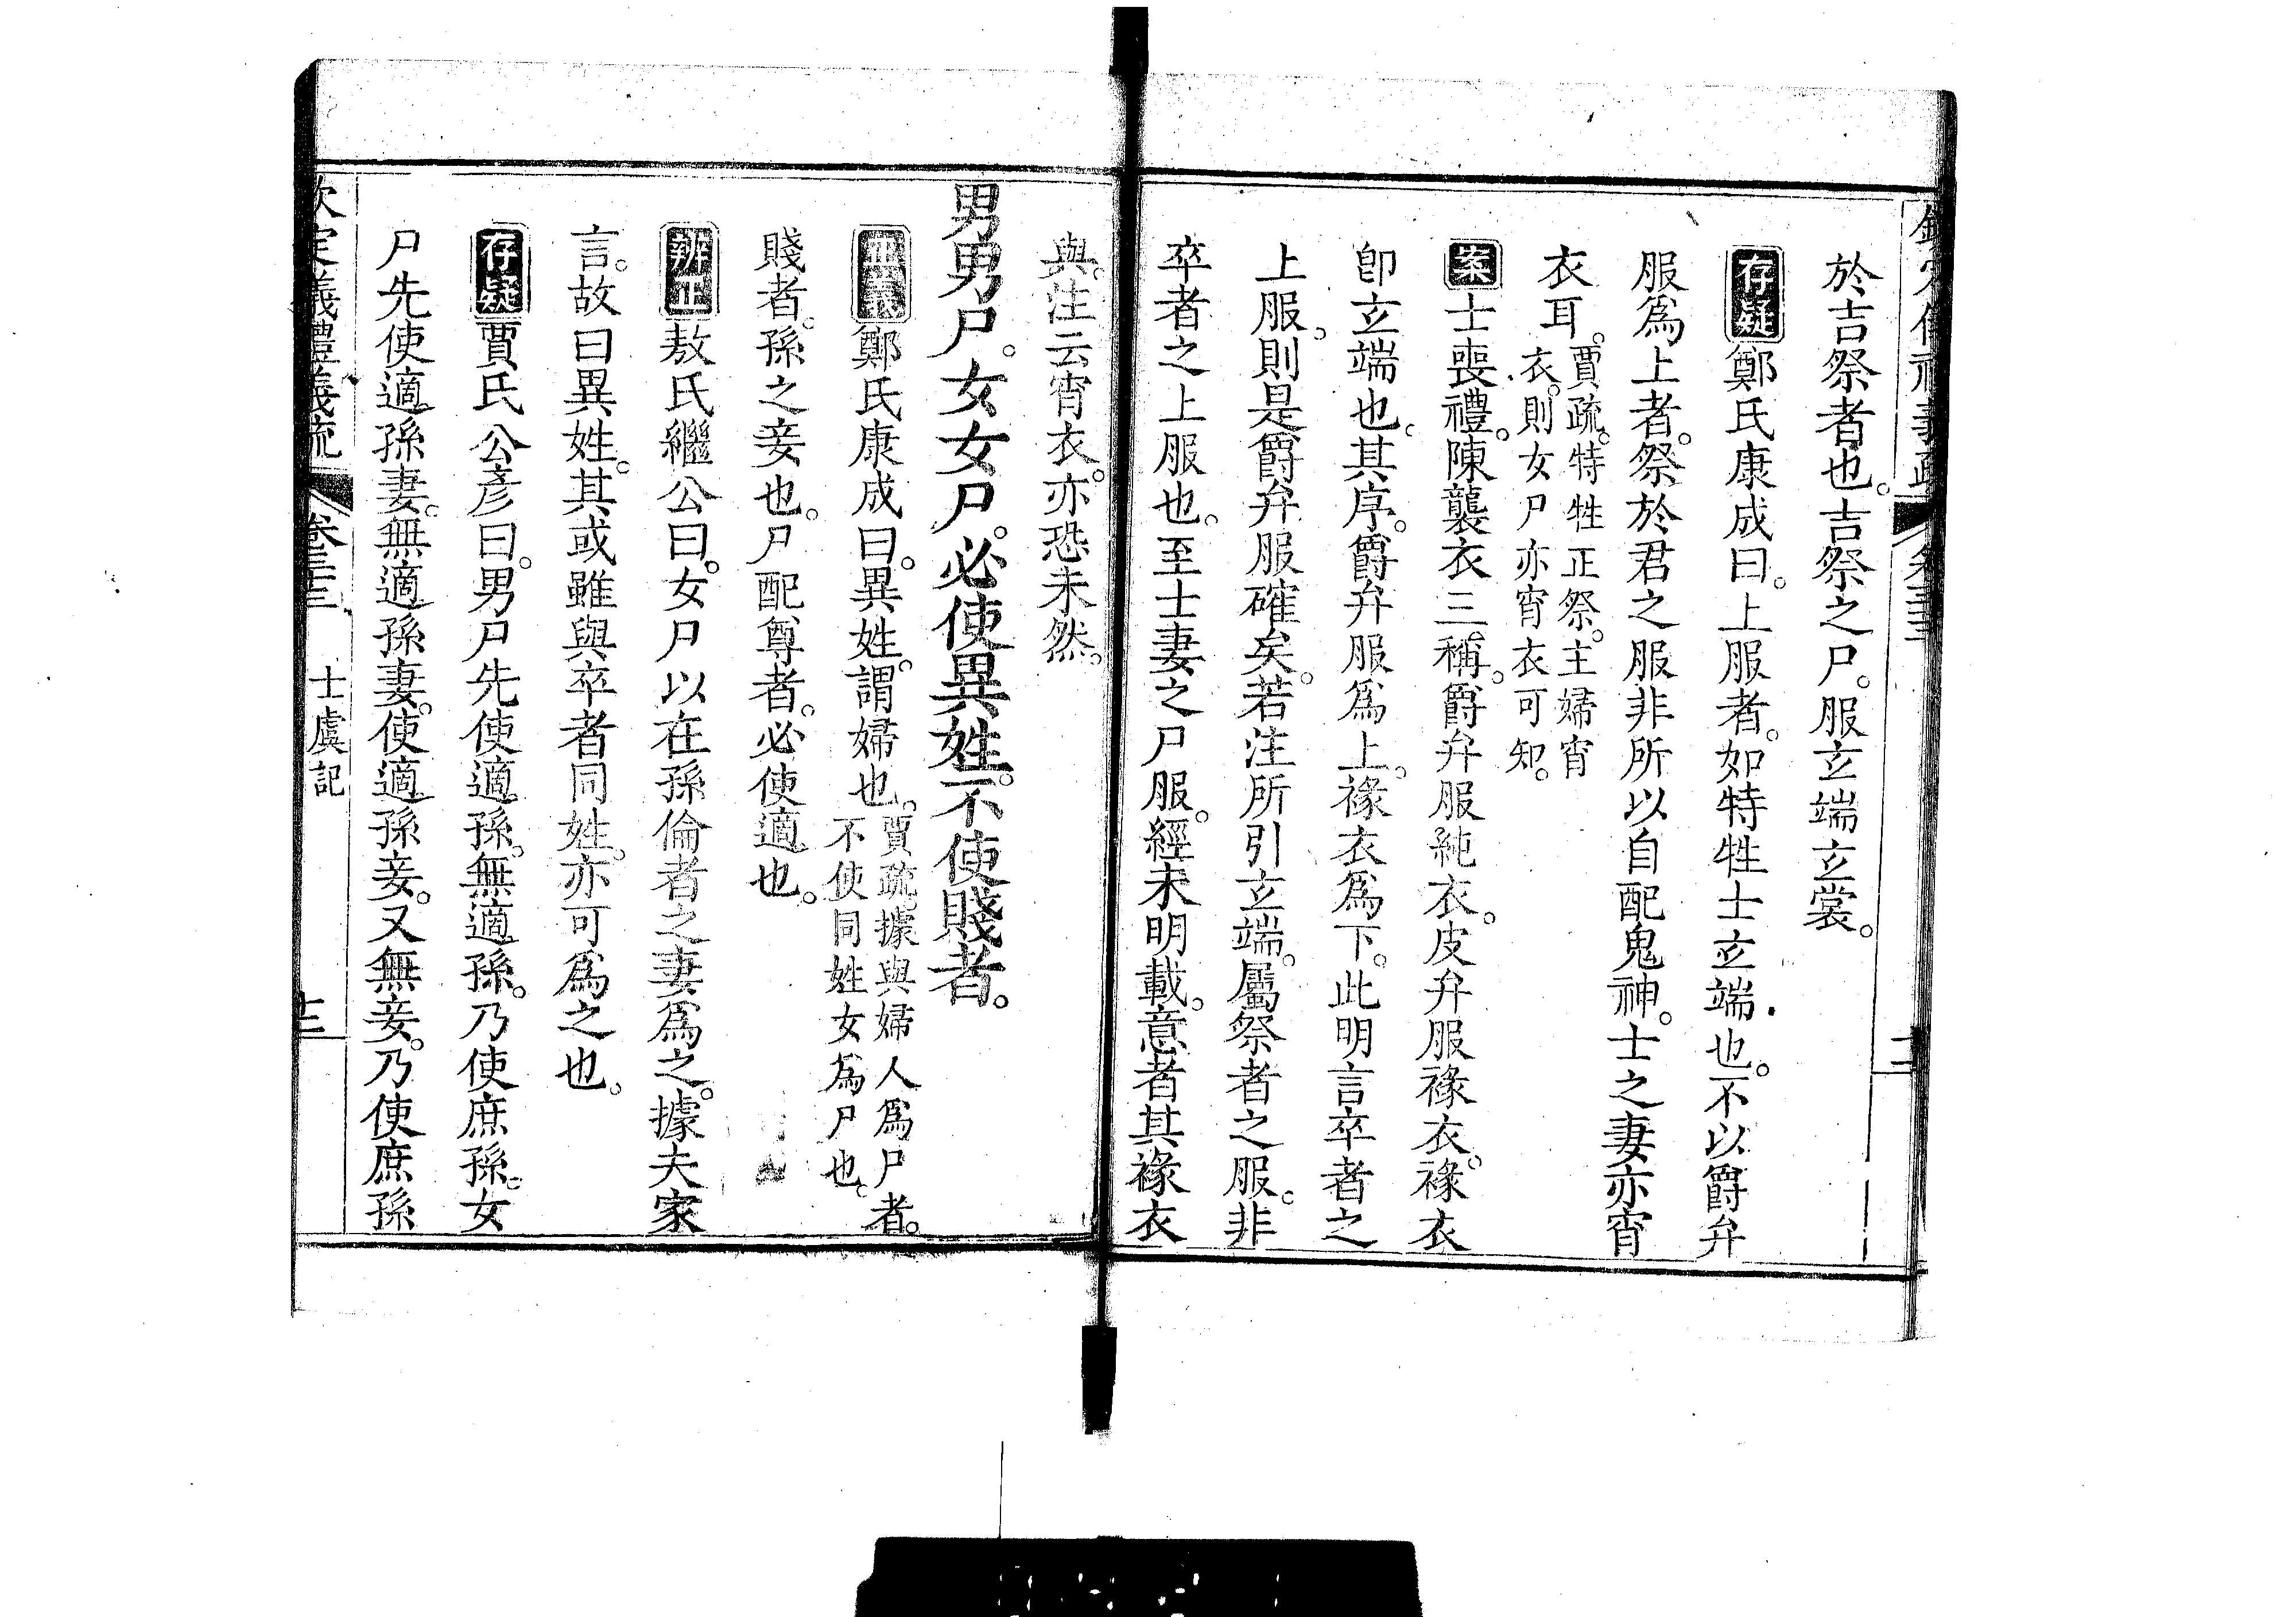 於吉祭者也。吉祭之尸。服玄端玄裳。
存疑鄭氏康成曰。上服者。如特牲士玄端也。不以爵弁
服爲上者。祭於君之服非所以自配鬼神。士之妻亦宵
衣耳。賈疏。特牲正祭。主婦宵
衣。則女尸亦宵衣可知。
案士喪禮。陳襲衣三稱。爵弁服純衣。皮弁服褖衣。褖衣
卽玄端也。其序。爵弁服爲上。褖衣爲下。此明言卒者之
上服。則是爵弁服確矣。若注所引玄端。屬祭者之服。非
卒者之上服也。至士妻之尸服。經未明載。意者其褖衣
與。注云宵衣。亦恐未然。
男男尸。女女尸。必使異姓。不使賤者。
正義鄭氏康成曰。異姓。謂婦也。賈疏。據與婦人爲尸者。
不使同姓女爲尸也。
賤者。孫之妾也。尸配尊者。必使適也。
辨正敖氏繼公曰。女尸以在孫倫者之妻爲之。據夫家
言。故曰異姓。其或雖與卒者同姓。亦可爲之也。
存疑賈氏公彥曰。男尸先使適孫。無適孫。乃使庶孫。女
尸先使適孫妻。無適孫妻。使適孫妾。又無妾。乃使庶孫
欽定儀禮義疏 卷三十三 士虞記 十三